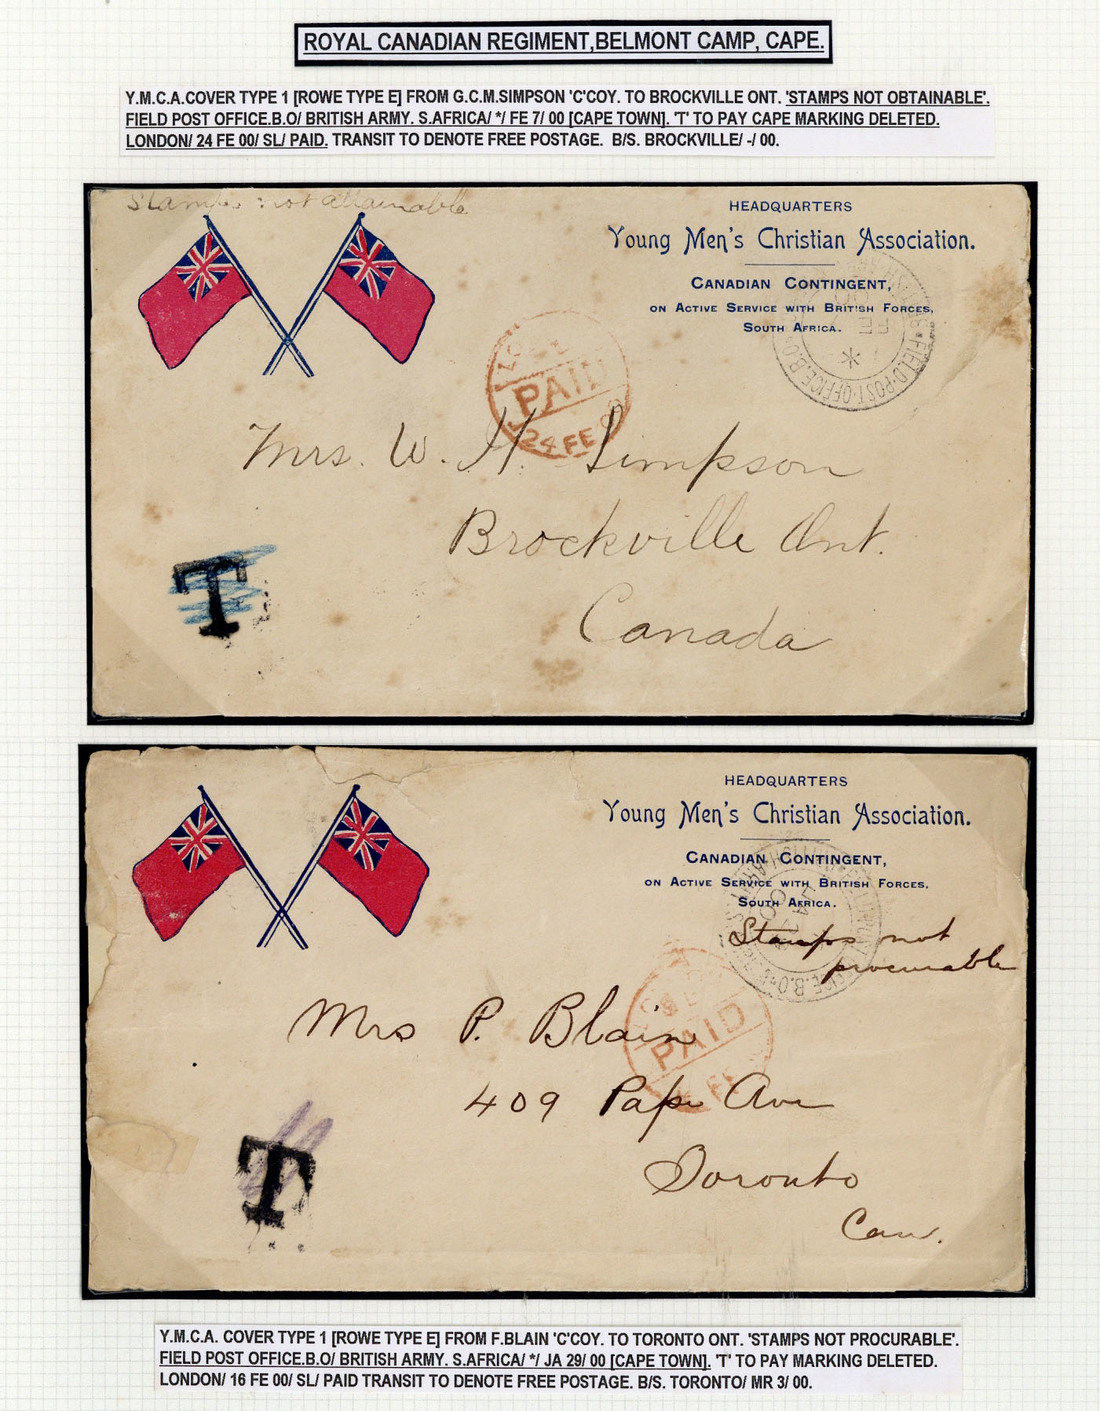 ROYAL CANADIAN REGIMENT,BELMONT CAMP, CAPE.
Y.M.C.A.COVER TYPE 1 [ROWE TYPE E] FROM G.C.M.SIMPSON 'C'COY. TO BROCKVILLE ONT. 'STAMPS NOT OBTAINABLE'.
FIELD POST OFFICE.B.O/ BRITISH ARMY. S.AFRICA/ */ FE 7/ 00 [CAPE TOWN]. 'T' TO PAY CAPE MARKING DELETED.
LONDON/ 24 FE 00/ SL/ PAID. TRANSIT TO DENOTE FREE POSTAGE. B/S. BROCKVILLE/ -/ 00.
Stamps not obtainable
HEADQUARTERS
Young Men's Christian Association.
CANADIAN CONTINGENT,
ON ACTIVE SERVICE WITH BRITISH FORCES,
SOUTH AFRICA.
FIELD·POST·OFFICE.B.O
FE
*
PAID
24 FE 00
Mrs. W. H. Simpson
Brockville Ont.
Canada
T
HEADQUARTERS
Young Men's Christian Association.
CANADIAN CONTINGENT,
ON ACTIVE SERVICE WITH BRITISH FORCES,
SOUTH AFRICA.
Stamps not
procurable
PAID
FE
Mrs P. Blain
409 Pape Ave
Toronto
Can.
T
Y.M.C.A. COVER TYPE 1 [ROWE TYPE E] FROM F.BLAIN 'C'COY. TO TORONTO ONT. 'STAMPS NOT PROCURABLE'.
FIELD POST OFFICE.B.O/ BRITISH ARMY. S.AFRICA/ */ JA 29/ 00 [CAPE TOWN]. 'T' TO PAY MARKING DELETED.
LONDON/ 16 FE 00/ SL/ PAID TRANSIT TO DENOTE FREE POSTAGE. B/S. TORONTO/ MR 3/ 00.